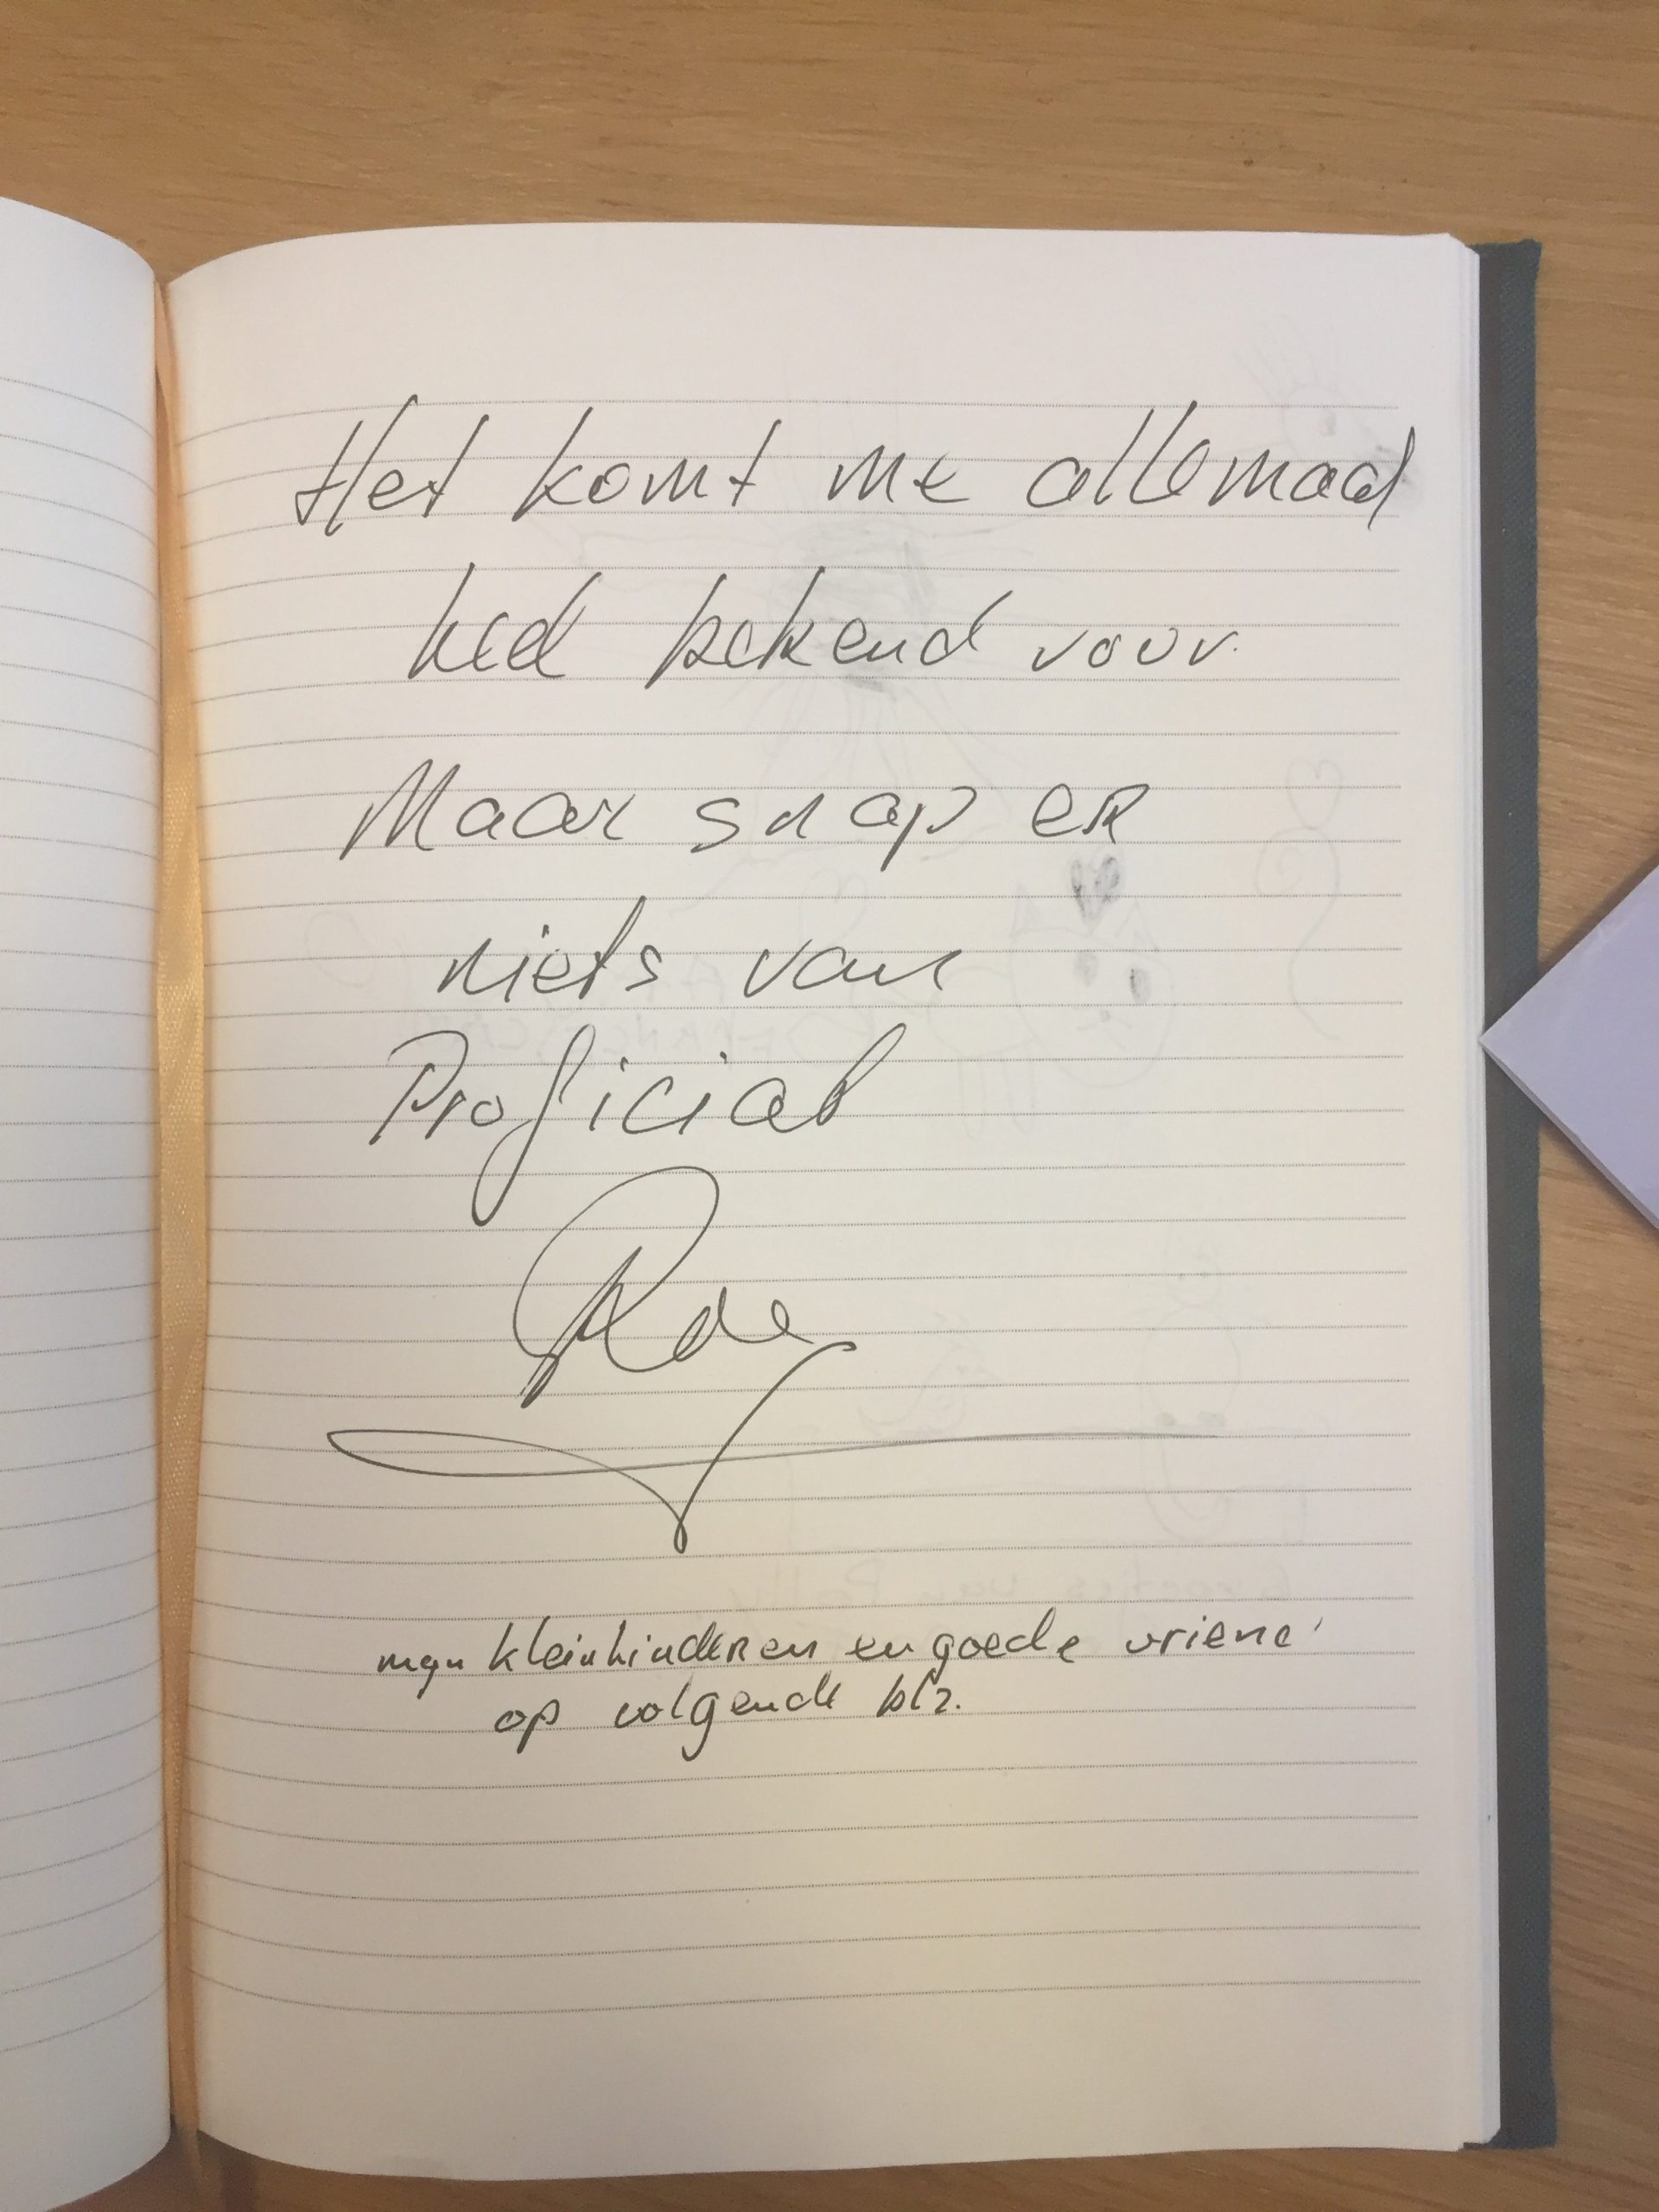 Het komt me allemaal
heel bekend voor.
Maar snap er
niets van
Proficiat
mijn kleinkinderen en goede vriend
op volgende blz.